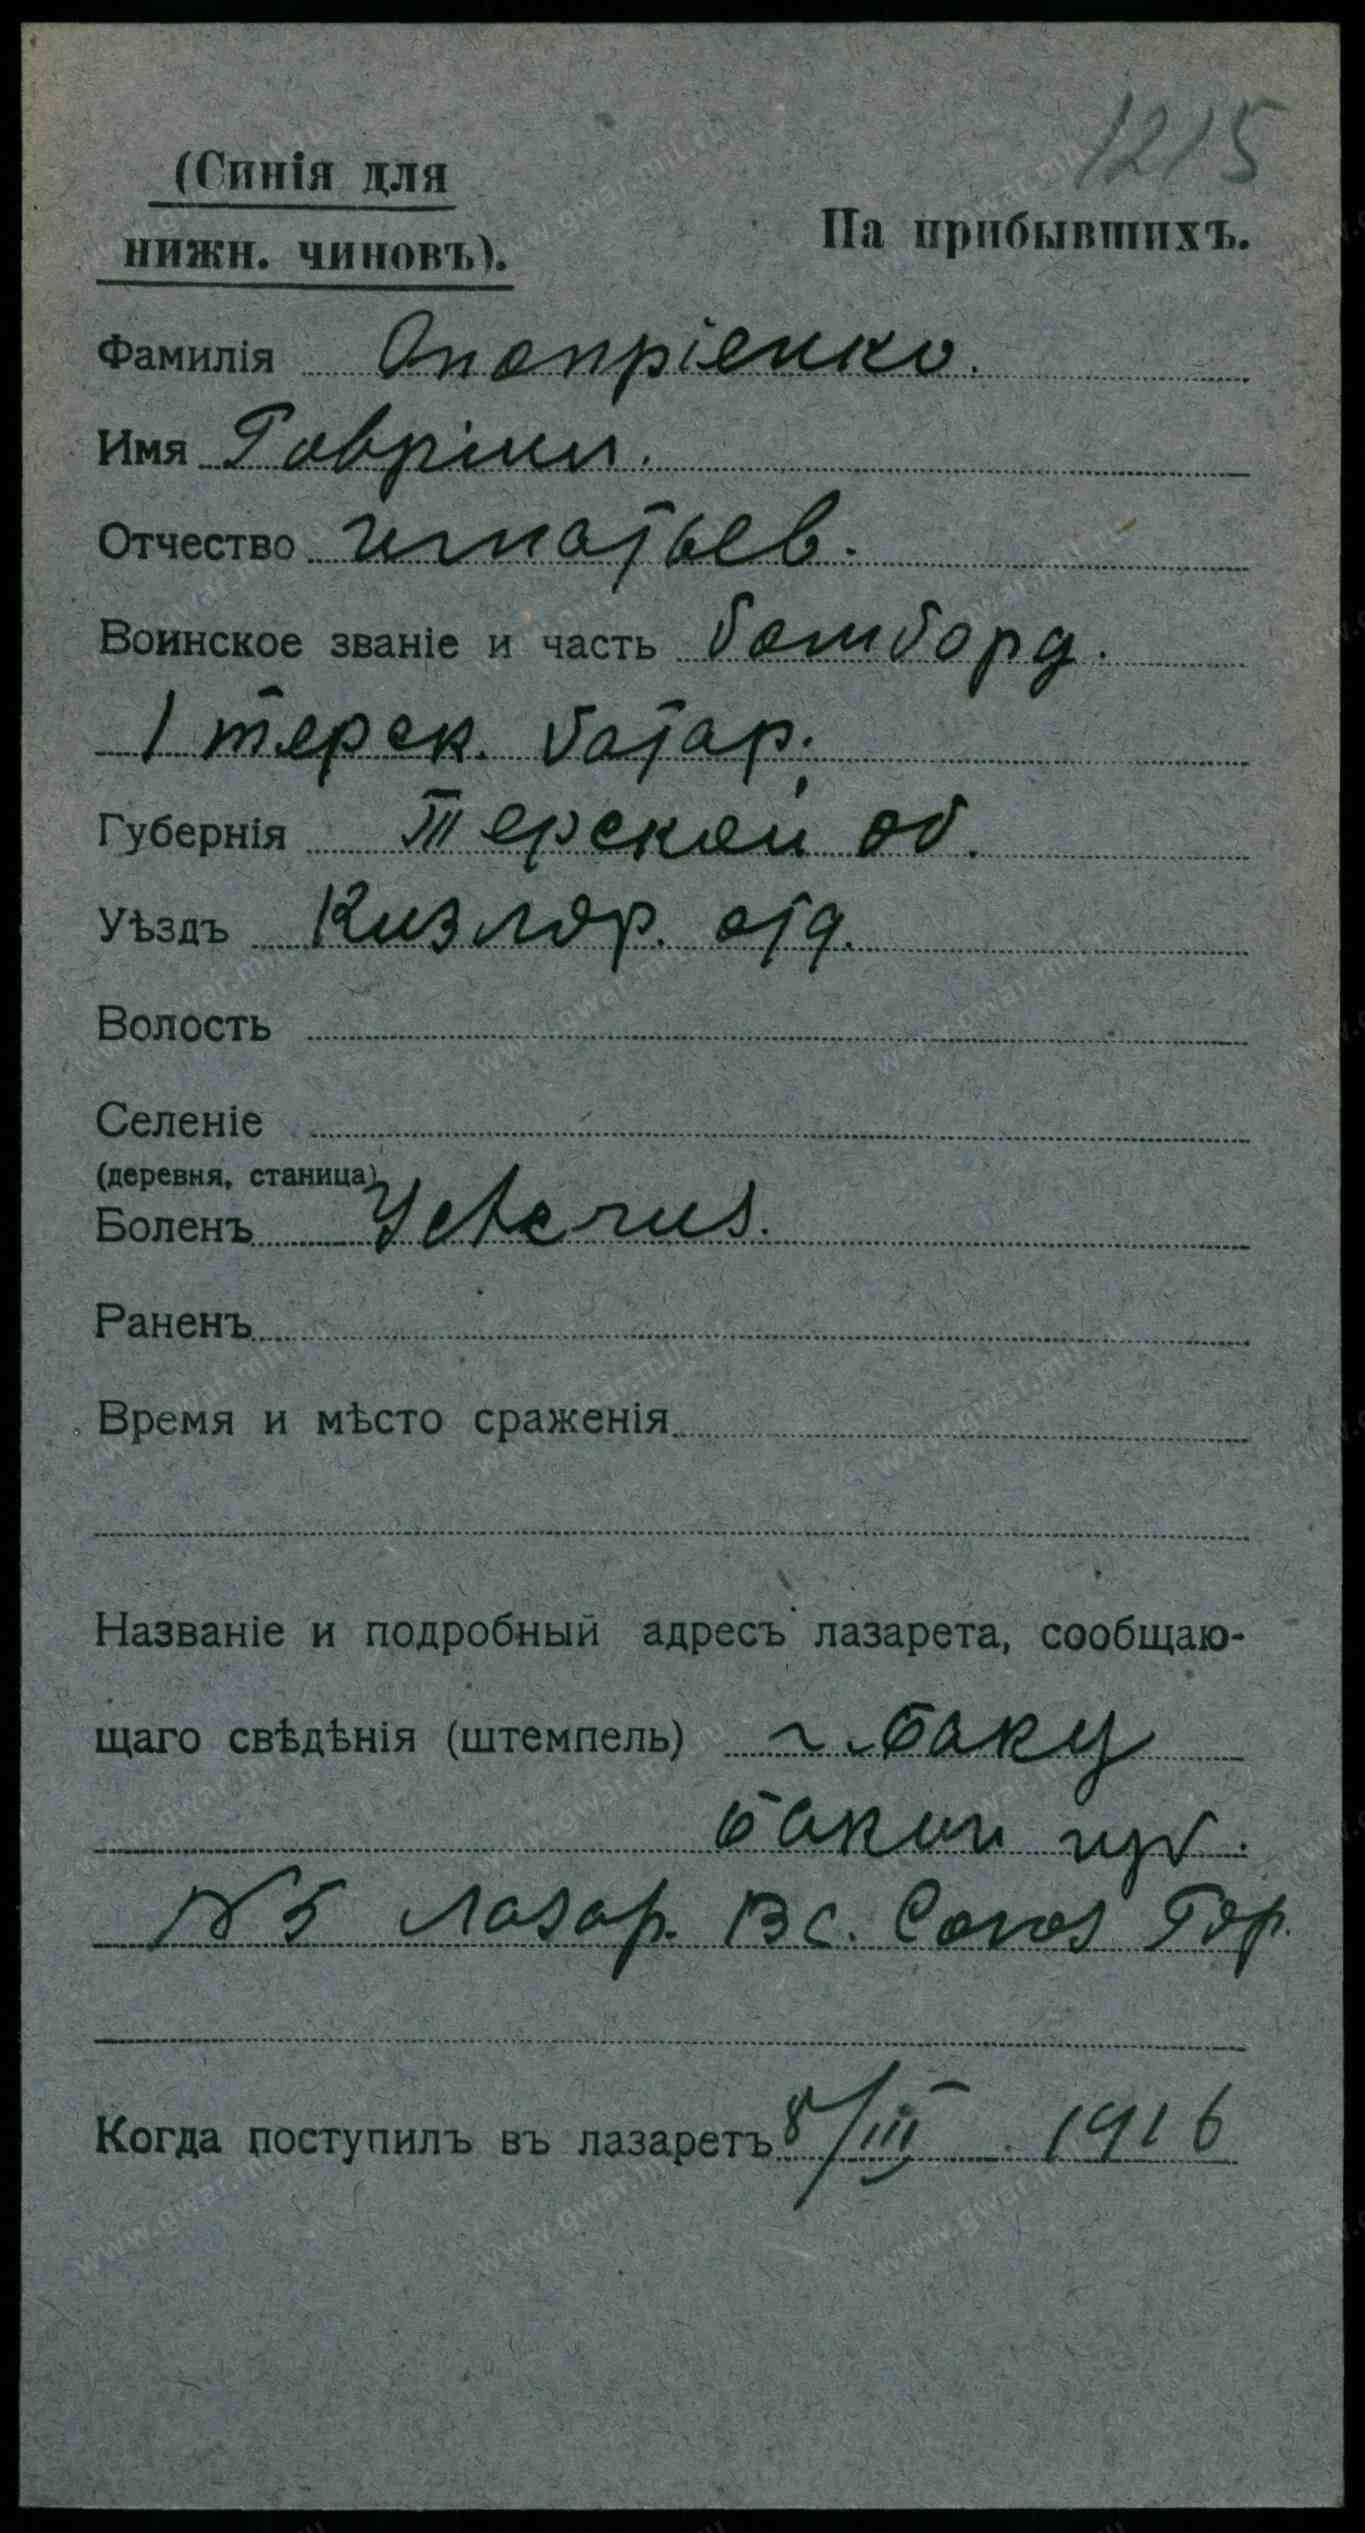 1215
(Синія для
нижн. чиновъ).
На прибывшихъ.
Фамилія Опопріенко.
Имя Гавріил.
Отчество игнатьев.
Воинское званіе и часть бомборд.
1 терск. батар.
Губернія Терской об.
Уѣздъ Кизляр. отд.
Волость
Селеніе
(деревня, станица)
Боленъ Icterus.
Раненъ
Время и мѣсто сраженія
Названіе и подробный адресъ лазарета, сообщаю-
щаго свѣдѣнія (штемпель) г. Баку
Бакин губ.
№ 5 Лазар. Вс. Союз Гор.
Когда поступилъ въ лазаретъ 8/III 1916